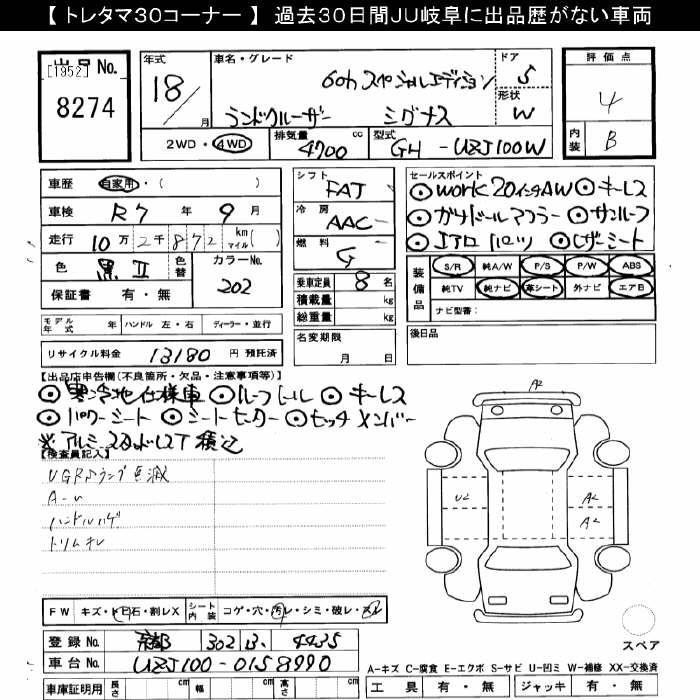 【 トレタマ３０コーナー 】 過去３０日間ＪＵ岐阜に出品歴がない車両
出品 No.
[1952]
8274
年式
18/
月
車名・グレード
60th スペシャルエディション
ランドクルーザー シグナス
ドア
5
形状
W
評価点
4
内装
B
2WD・4WD
排気量
4700 cc
型式
GH - UZJ100W
車歴 自家用・( )
車検 R7 年 9 月
走行 10 万 2 千 8 7 2 km マイル( )
色 黒Ⅱ 色替 カラーNo. 202
保証書 有・無
シフト
FAT
冷房
AAC
燃料
G
乗車定員 8 名
積載量 kg
総重量 kg
セールスポイント
◎work 20インチAW ◎キーレス
◎ガナドールマフラー ◎サンルーフ
◎エアロパーツ ◎レザーシート
装備品
S/R 純A/W P/S P/W ABS
純TV 純ナビ 革シート 外ナビ エアB
ナビ型番：
モデル年式 年 ハンドル 左・右 ディーラー・並行
リサイクル料金 13180 円 預託済
名変期限
月 日
後日品
【出品店申告欄(不良箇所・欠品・注意事項等)】
◎寒冷地仕様車 ◎ルーフレール ◎キーレス
◎パワーシート ◎シートヒーター ◎セッチメンバー
※アルミスタッドレスT積込
【検査員記入】
VGRSランプ点滅
A-u
ハンドルハゲ
トリムキレ
A2
U2
A2
A2
FW キズ・トビ石・割レX シート内装 コゲ・穴・汚レ・シミ・破レ・スレ
登録 No. 京都 302 ひ 4435
車台 No. UZJ100-0158990
車庫証明用 長さ cm 幅 cm 高さ cm
スペア
A-キズ C-腐食 E-エクボ S-サビ U-凹ミ W-補修 XX-交換済
工具 有・無 ジャッキ 有・無